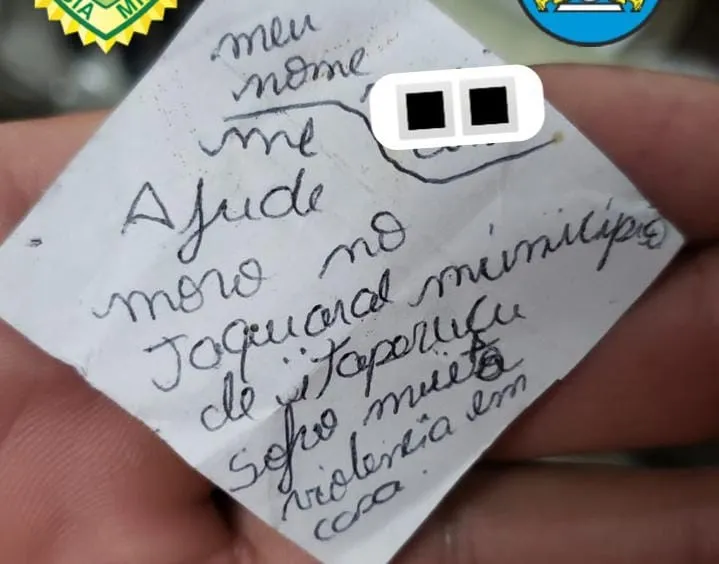 IA MI
meu
nome
me
Ajude
moro no
Jaquaral município
de itaperuçu
Sofro muita
violencia em
casa.